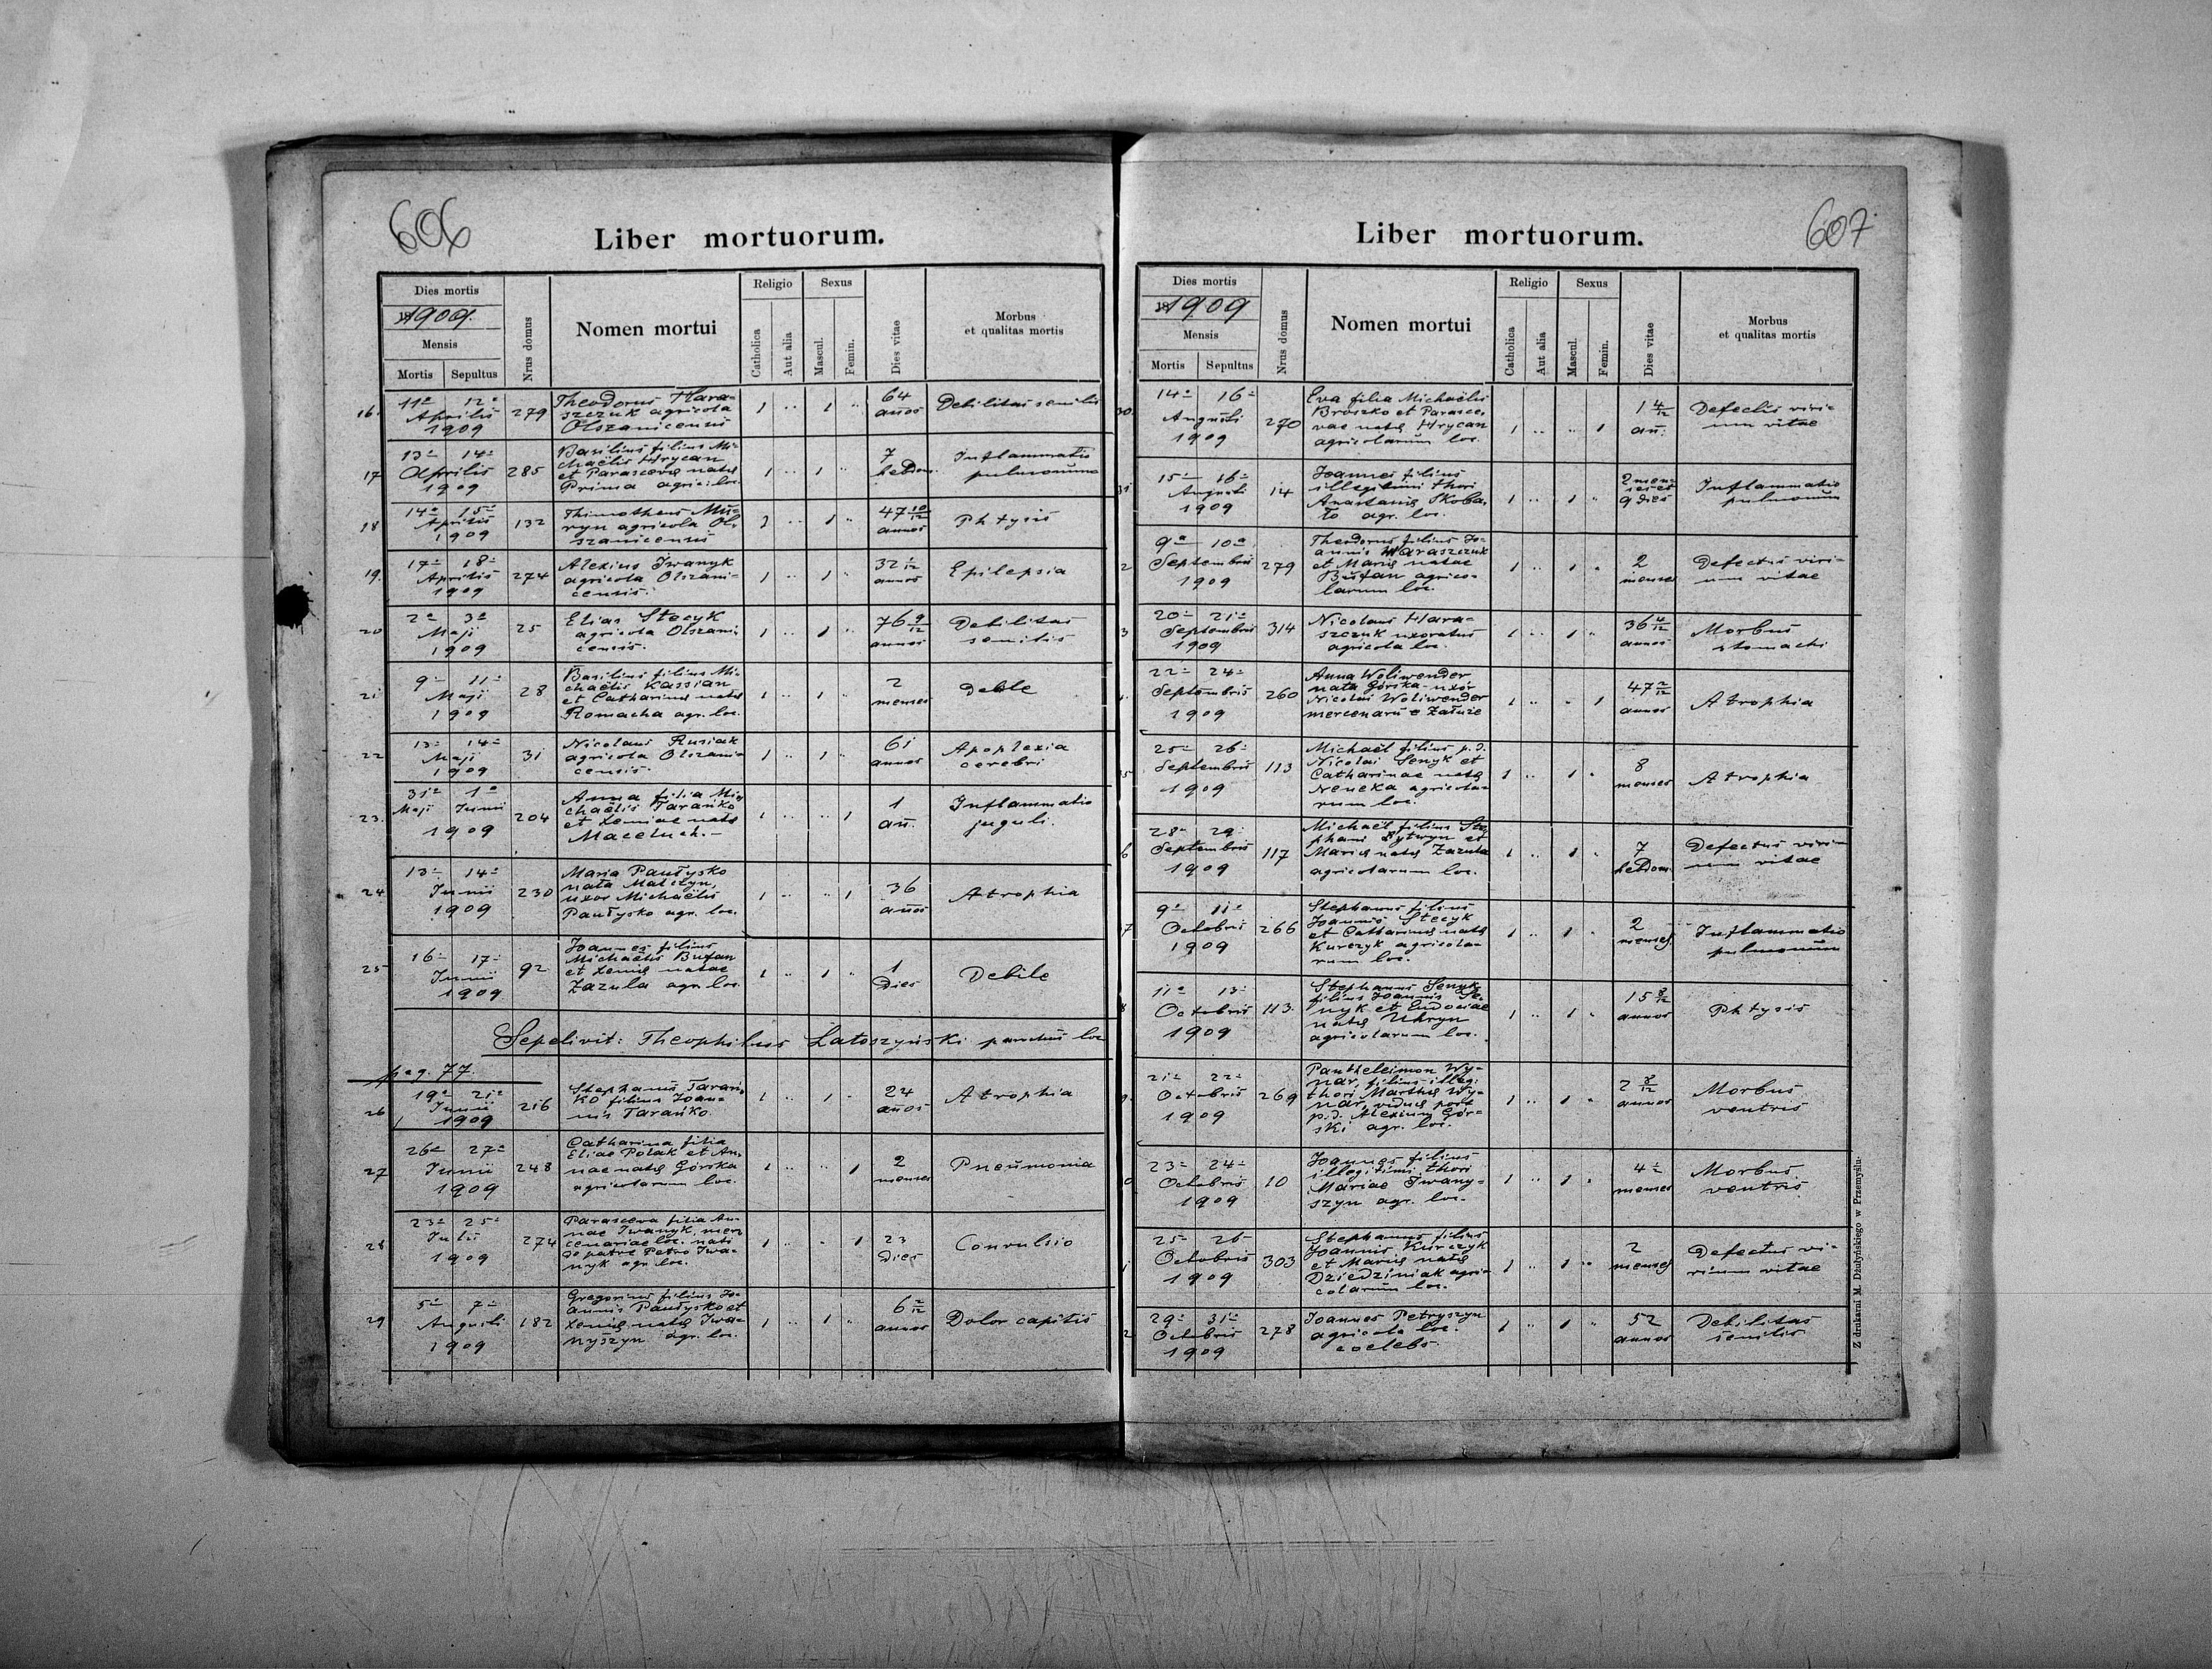 606
Liber mortuorum.
Dies mortis
1909.
Mensis
Mortis Sepultus
Nrus domus
Nomen mortui
Religio
Catholica
Aut alia
Sexus
Mascul.
Femin.
Dies vitae
Morbus
et qualitas mortis
16. 11a 12a Aprilis 1909 279
Theodorus Hara-
szczuk agricola
Olszanicensis
1 .. 1 .. 64 annos Debilitas senilis
17 13a 14a Aprilis 1909 285
Basilius filius Mi-
chaëlis Hrycan
et Parascevae natae
Prima agric. loc.
1 .. 1 .. 7 hebdom. Inflammatio
pulmonum
18 14a 15a Aprilis 1909 132
Thimotheus Mu-
ryn agricola Ol-
szanicensis
1 .. 1 .. 47 10/12 annos Phtysis
19. 17a 18a Aprilis 1909 274
Alexius Iwanyk
agricola Olszani-
censis.
1 .. 1 .. 32 1/12 annos Epilepsia
20 2a 3a Maji 1909 25
Elias Stecyk
agricola Olszani-
censis.
1 .. 1 .. 76 9/12 annos Debilitas
senilis
21 9a 11a Maji 1909 28
Basilius filius Mi-
chaëlis Kassian
et Catharinae natae
Romacha agr. loc.
1 .. 1 .. 2 menses Debile
22 13a 14a Maji 1909 31
Nicolaus Rusiak
agricola Olszani-
censis.
1 .. 1 .. 61 annos Apoplexia
cerebri
23. 31a 1a Maji Junii 1909 204
Anna filia Mi-
chaëlis Tarańko
et Xeniae natae
Maceluch.
1 .. .. 1 1 an. Inflammatio
juguli.
24 13a 14a Junii 1909 230
Maria Pautysko
nata Malczyn,
uxor Michaëlis
Pautysko agr. loc.
1 .. .. 1 36 annos Atrophia
25 16a 17a Junii 1909 92
Joannes filius
Michaëlis Bufan
et Xeniae natae
Zazula agr. loc.
1 .. 1 .. 1 Dies Debile
Sepelivit: Theophilus Latoszyński parochus loc
pag. 77.
26 19a 21a Junii 1909 216
Stephanus Tarań-
ko filius Joan-
nis Tarańko.
1 .. 1 .. 24 annos Atrophia
27 26a 27a Junii 1909 248
Catharina filia
Eliae Polak et An-
nae natae Górska
agricolarum loc.
1 .. .. 1 2 menses Pneumonia
28 23a 25a Julii 1909 274
Parasceva filia An-
nae Iwanyk, mer-
cenariae loc. nati
de patre Petro Iwa-
nyk agr. loc.
1 .. .. 1 23 Dies Convulsio
29 5a 7a Augusti 1909 182
Gregorius filius Jo-
annis Pautysko et
Xeniae natae Iwa-
nyszyn agr. loc.
1 .. 1 .. 6 2/12 annos Dolor capitis
607
Liber mortuorum.
Dies mortis
1909
Mensis
Mortis Sepultus
Nrus domus
Nomen mortui
Religio
Catholica
Aut alia
Sexus
Mascul.
Femin.
Dies vitae
Morbus
et qualitas mortis
30 14a 16a Augusti 1909 270
Eva filia Michaëlis
Broszko et Parasce-
vae natae Hrycan
agricolarum loc.
1 .. .. 1 1 4/12 an. Defectus viri-
um vitae
31 15a 16a Augusti 1909 14
Joannes filius
illegitimi thori
Anastasiae Skoba-
to agr. loc.
1 .. 1 .. 2 men-
ses et
9 dies Inflammatio
pulmonum
2 9a 10a Septembris 1909 279
Theodorus filius Jo-
annis Haraszczuk
et Mariae natae
Bufan agrico-
larum loc.
1 .. 1 .. 2 menses Defectus viri-
um vitae
3 20a 21a Septembris 1909 314
Nicolaus Hara-
szczuk uxoratus
agricola loc.
1 .. 1 .. 36 4/12 annos Morbus
stomachi
22a 24a Septembris 1909 260
Anna Woliwender
nata Górska uxor
Nicolai Woliwender
mercenarii e Załuże
1 .. .. 1 47 2/12 annos Atrophia
5 25a 26a Septembris 1909 113
Michaël filius p.d.
Nicolai Senyk et
Catharinae natae
Neneka agricola-
rum loc.
1 .. 1 .. 8 menses Atrophia
6 28a 29a Septembris 1909 117
Michaël filius Ste-
phani Łytwyn et
Mariae natae Zazula
agricolarum loc.
1 .. 1 .. 7 hebdom. Defectus viri-
um vitae
7 9a 11a Octobris 1909 266
Stephanus filius
Joannis Stecyk
et Catharinae natae
Kurczyk agricola-
rum loc.
1 .. 1 .. 2 menses Inflammatio
pulmonum
8 11a 13a Octobris 1909 113.
Stephanus Senyk
filius Joannis Se-
nyk et Eudociae
natae Uhryn
agricolarum loc.
1 .. 1 .. 15 8/12 annos Phtysis
21a 22a Octobris 1909 269
Pantheleimon Wy-
nar, filius illeg.
thori Marthae Wy-
nar, viduae post
p.d. Alexium Gór-
ski agr. loc.
1 .. 1 .. 2 8/12 annos Morbus
ventris
0 23a 24a Octobris 1909 10
Joannes filius
illegitimi thori
Mariae Iwany-
szyn agr. loc.
1 .. 1 .. 4 1/2 menses Morbus
ventris
1 25a 26a Octobris 1909 303
Stephanus filius
Joannis Kurczyk
et Mariae natae
Dziedziniak agri-
colarum loc.
1 .. 1 .. 2 menses Defectus vi-
rium vitae
2 29a 31a Octobris 1909 278
Joannes Petryszyn
agricola loc.
coelebs
1 .. 1 .. 52 annos Debilitas
senilis
Z drukarni M. Dżułyńskiego w Przemyślu.